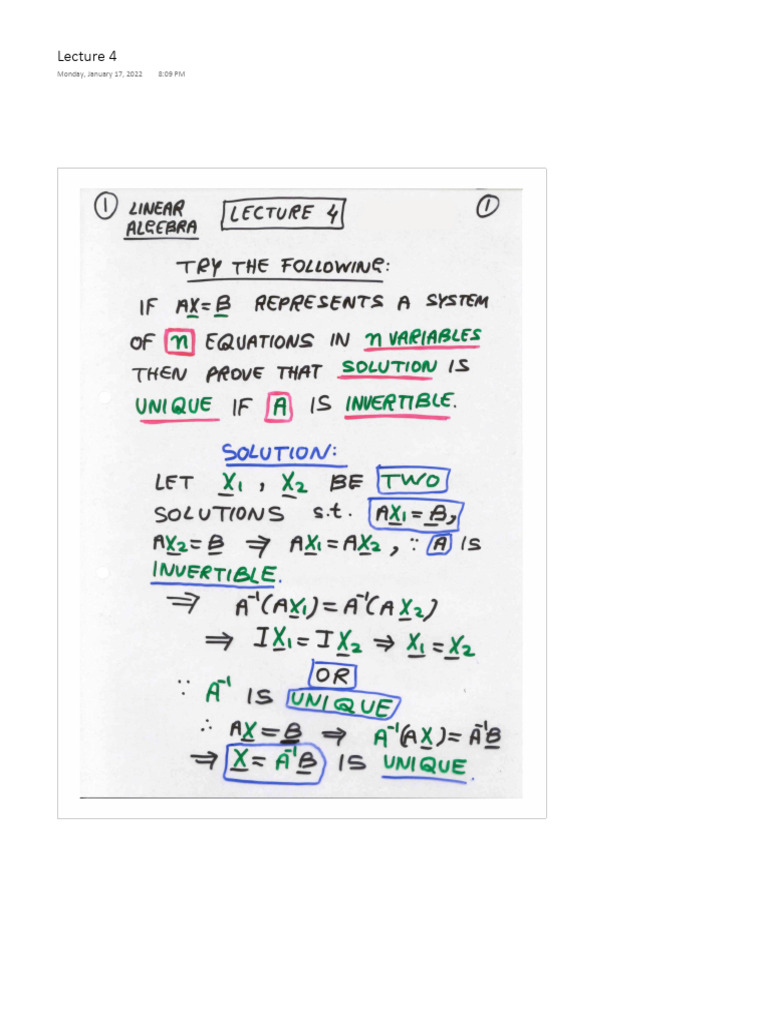 Lecture 4
Monday, January 17, 2022 8:09 PM
① LINEAR ALGEBRA LECTURE 4 ①
TRY THE FOLLOWING:
IF AX = B REPRESENTS A SYSTEM
OF n EQUATIONS IN n VARIABLES
THEN PROVE THAT SOLUTION IS
UNIQUE IF A IS INVERTIBLE.
SOLUTION:
LET X₁, X₂ BE TWO
SOLUTIONS s.t. AX₁ = B,
AX₂ = B ⇒ AX₁ = AX₂, ∵ A IS
INVERTIBLE.
⇒ A⁻¹(AX₁) = A⁻¹(AX₂)
⇒ IX₁ = IX₂ ⇒ X₁ = X₂
OR
∵ A⁻¹ IS UNIQUE
∴ AX = B ⇒ A⁻¹(AX) = A⁻¹B
⇒ X = A⁻¹B IS UNIQUE.